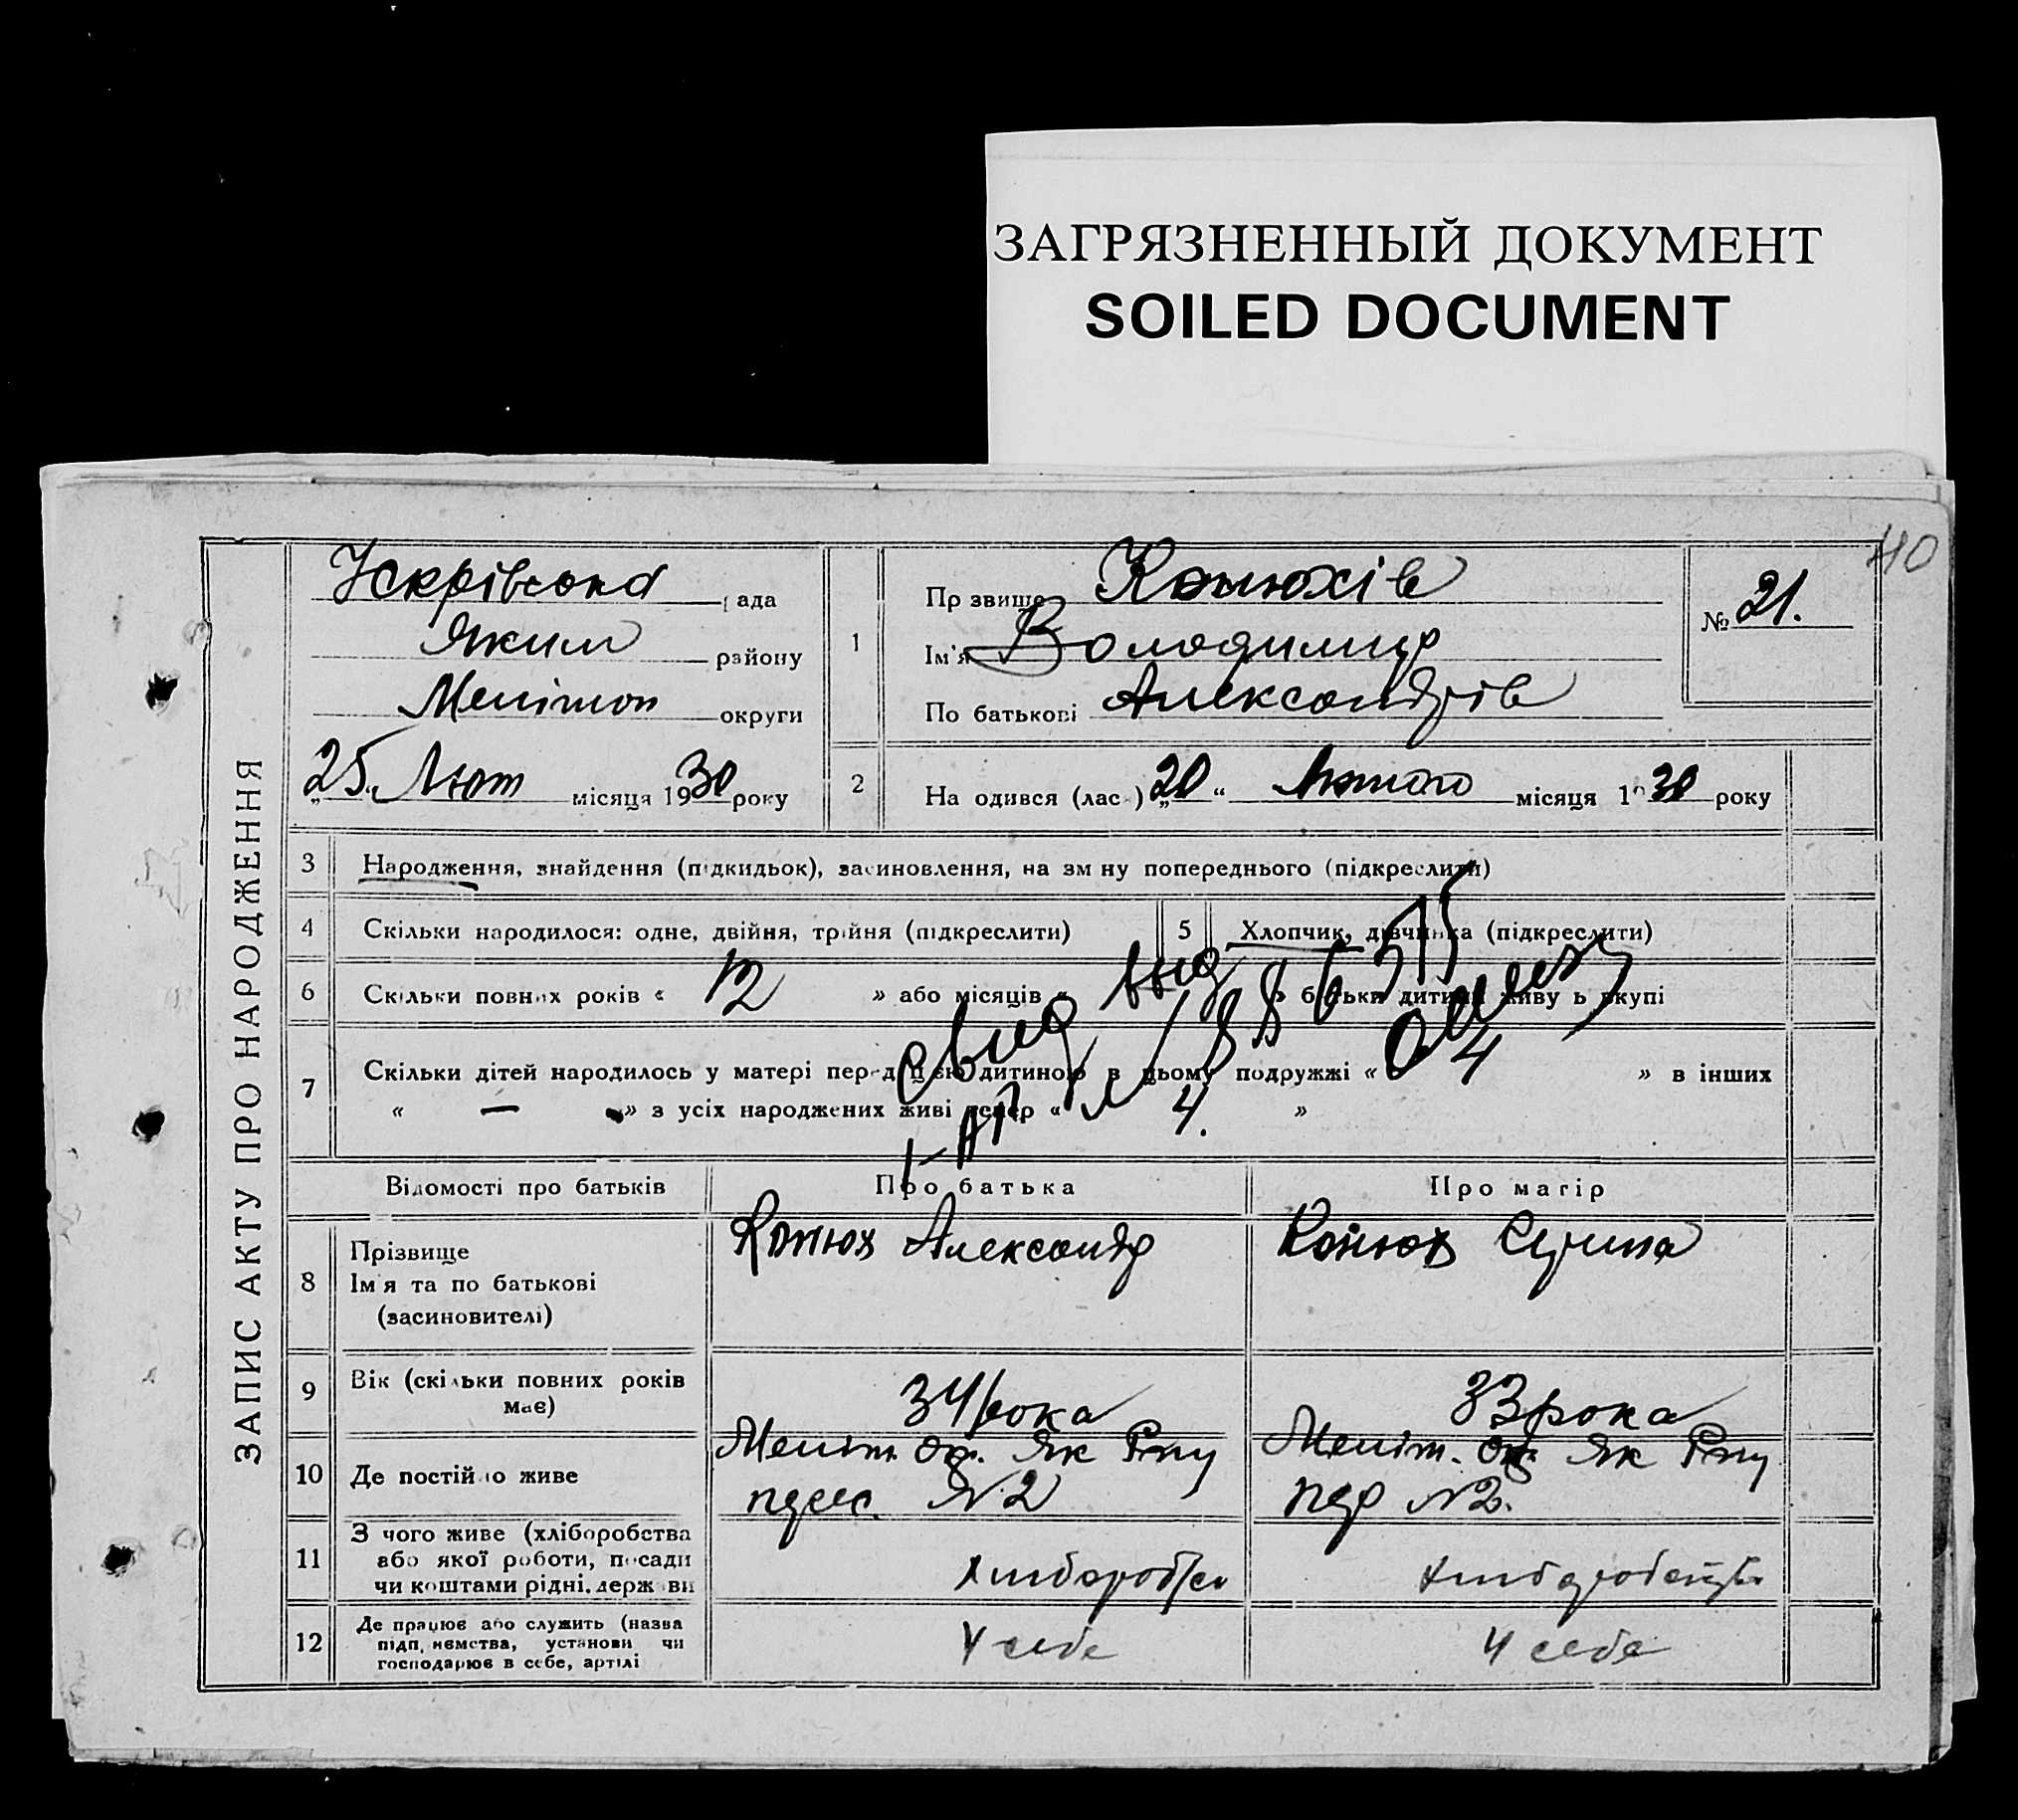 ЗАГРЯЗНЕННЫЙ ДОКУМЕНТ
SOILED DOCUMENT
40
ЗАПИС АКТУ ПРО НАРОДЖЕННЯ
Іскрівська рада
Яким району
Меліт округи
„25„ Лют місяця 1930 року
1
Прізвище Конюхів
Ім'я Володимир
По батькові Александрів
№ 21.
2 На одився (лас ) „20“ Лютого місяця 1930 року
3 Народження, знайдення (підкидьок), засиновлення, на зм ну попереднього (підкреслити)
4 Скільки народилося: одне, двійня, трійня (підкреслити)
5 Хлопчик, дівчинка (підкреслити)
6 Скільки повних років « 12 » або місяців « » батьки дитини живу ь вкупі
7 Скільки дітей народилось у матері перед цією дитиною в цьому подружжі « 4 » в інших
« — » з усіх народжених живі тепер « 4. »
Відомості про батьків Про батька Про матір
8 Прізвище
Ім'я та по батькові
(засиновителі)
Конюх Александр
Конюх
9 Вік (скільки повних років
має)
34 рока
33 рока
10 Де постійно живе
Меліт. ок. Як Рну
N 2
Меліт. ок. Як Рну
N2.
11 З чого живе (хліборобства
або якої роботи, посади
чи коштами рідні, держ ви
12 Де працює або служить (назва
підп. иємства, установи чи
господарює в себе, артілі
У себе
У себе